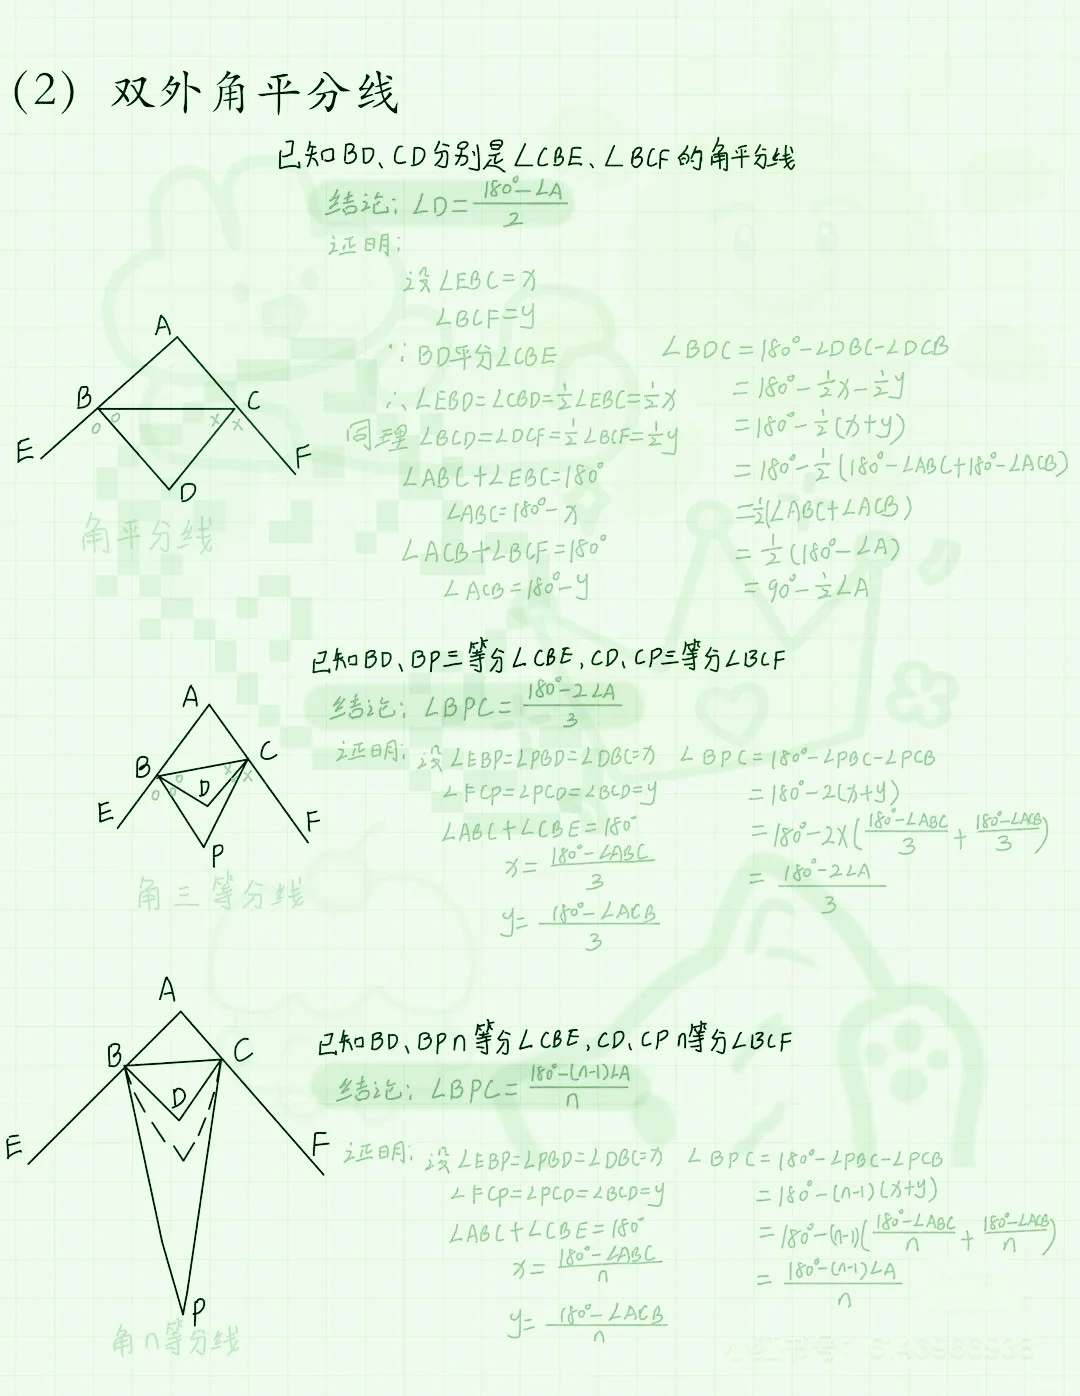 (2) 双外角平分线
已知BD、CD分别是∠CBE、∠BCF的角平分线
结论: ∠D=(180°-∠A)/2
证明:
设∠EBC=x
∠BCF=y
∵BD平分∠CBE
∴∠EBD=∠CBD=½∠EBC=½x
同理∠BCD=∠DCF=½∠BCF=½y
∠ABC+∠EBC=180°
∠ABC=180°-x
∠ACB+∠BCF=180°
∠ACB=180°-y
∠BDC=180°-∠DBC-∠DCB
=180°-½x-½y
=180°-½(x+y)
=180°-½(180°-∠ABC+180°-∠ACB)
=½(∠ABC+∠ACB)
=½(180°-∠A)
=90°-½∠A
A
B
C
E
F
D
角平分线
已知BD、BP三等分∠CBE,CD、CP三等分∠BCF
结论: ∠BPC=(180°-2∠A)/3
证明: 设∠EBP=∠PBD=∠DBC=x
∠FCP=∠PCD=∠BCD=y
∠ABC+∠CBE=180°
x=(180°-∠ABC)/3
y=(180°-∠ACB)/3
∠BPC=180°-∠PBC-∠PCB
=180°-2(x+y)
=180°-2×((180°-∠ABC)/3+(180°-∠ACB)/3)
=(180°-2∠A)/3
A
B
C
D
E
F
P
角三等分线
已知BD、BPn等分∠CBE,CD、CPn等分∠BCF
结论: ∠BPC=(180°-(n-1)∠A)/n
证明: 设∠EBP=∠PBD=∠DBC=x
∠FCP=∠PCD=∠BCD=y
∠ABC+∠CBE=180°
x=(180°-∠ABC)/n
y=(180°-∠ACB)/n
∠BPC=180°-∠PBC-∠PCB
=180°-(n-1)(x+y)
=180°-(n-1)((180°-∠ABC)/n+(180°-∠ACB)/n)
=(180°-(n-1)∠A)/n
A
B
C
D
E
F
P
角n等分线